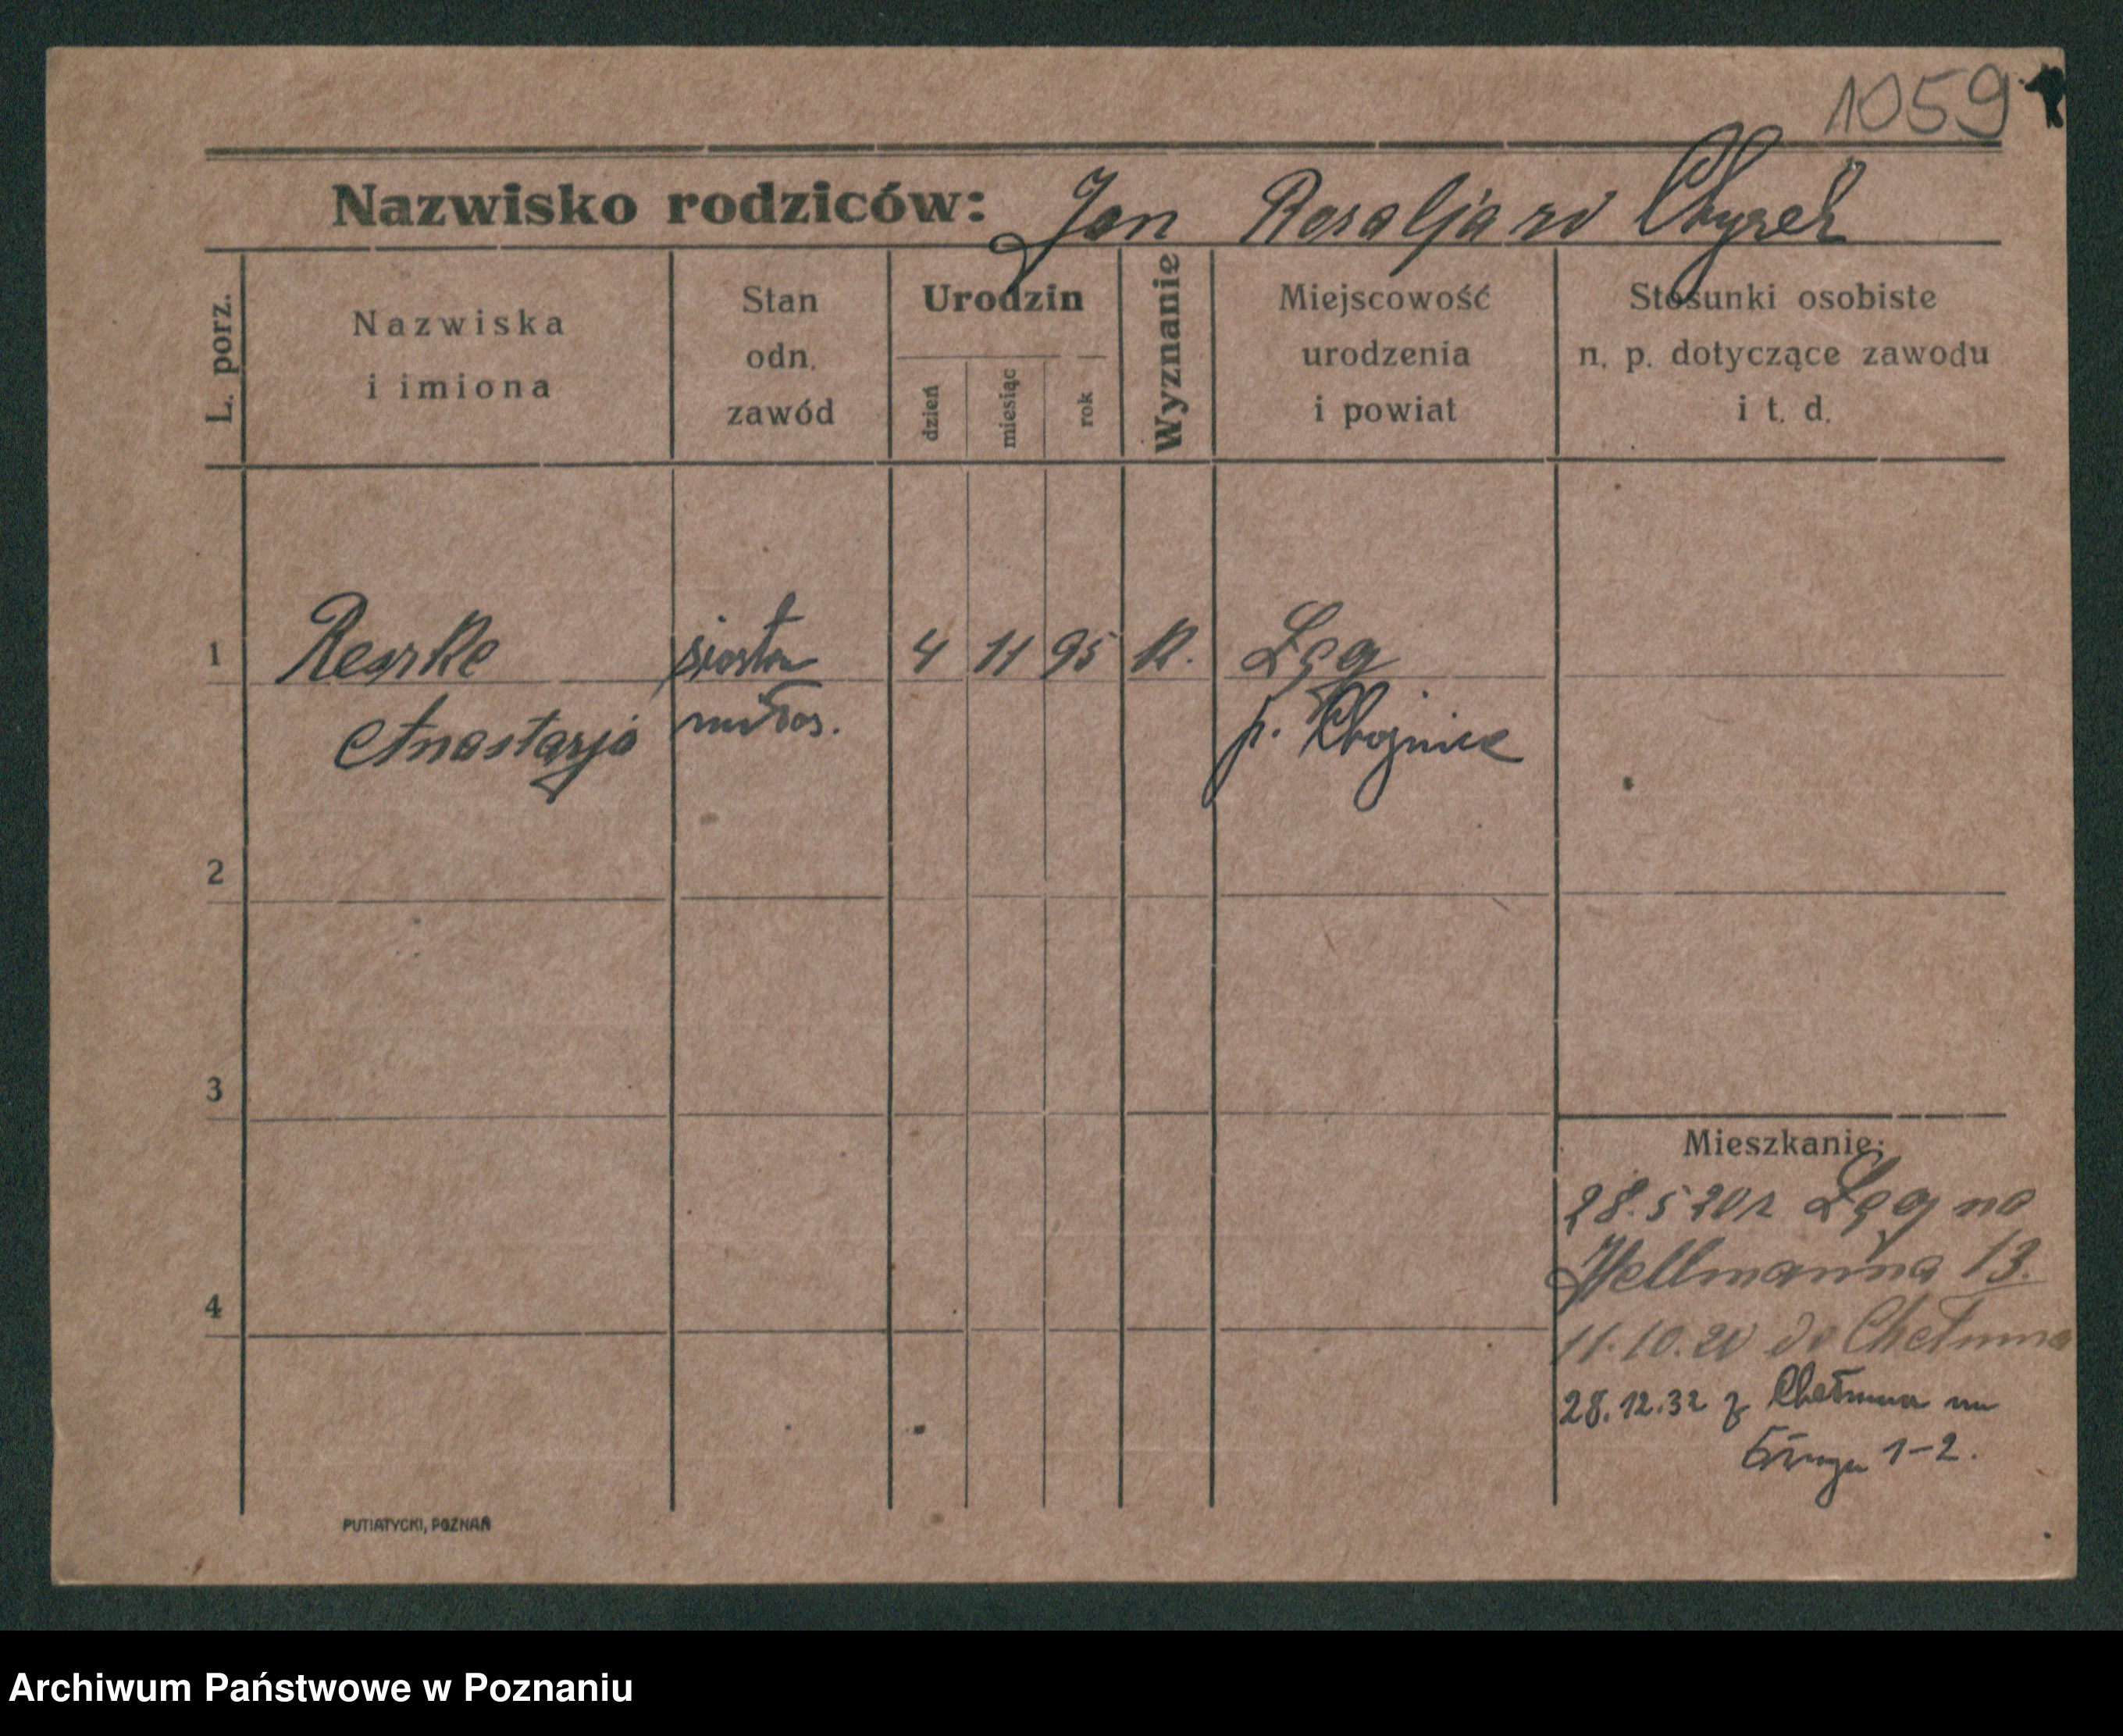 1059
Nazwisko rodziców: Jan Rosalja
L. porz.
Nazwiska
i imiona
Stan
odn.
zawód
Urodzin
dzień
miesiąc
rok
Wyznanie
Miejscowość
urodzenia
i powiat
Stosunki osobiste
n. p. dotyczące zawodu
i t. d.
1 Reszke siostra 4 11 95 K. Łąg
Anastazja miłos. p. Chojnice
2
3
4
Mieszkanie:
28.5 20 z Łąg na
Hellmanna 13.
11.10.20 do Chełmna
28.12.32 z Chełmna na
Długa 1-2.
PUTIATYCKI, POZNAŃ
Archiwum Państwowe w Poznaniu